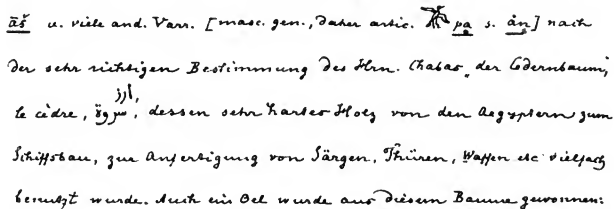 āš u. viele and. Varr. [masc. gen., daher artic. pa s. án] nach
der sehr richtigen Bestimmung des Hrn. Chabas „der Cedernbaum,
le cèdre, ارز, dessen sehr hartes Holz von den Aegyptern zum
Schiffsbau, zur Anfertigung von Särgen, Thüren, Waffen etc vielfach
benutzt wurde. Auch ein Oel wurde aus diesem Baume gewonnen: